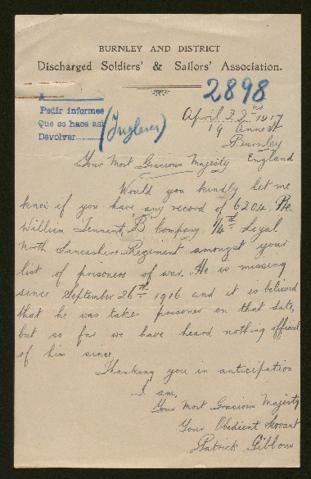 BURNLEY AND DISTRICT
Discharged Soldiers' & Sailors' Association.
2898
Pedir informes
Que se hace ask
Devolver
(Ingleses)
April 22nd 1917
19 Anne St
Burnley
England
Your Most Gracious Majesty
Would you kindly let me
know if you have any record of 6204. Pte
William Tennant, B Company. 1/4th Loyal
North Lancashire Regiment amongst your
list of prisoners of war. He is missing
since September 26th 1916 and it is believed
that he was taken prisoner on that date,
but so far we have heard nothing official
of him since.
Thanking you in anticipation
I am,
Your Most Gracious Majesty
Your Obedient Servant
Patrick Gibbons